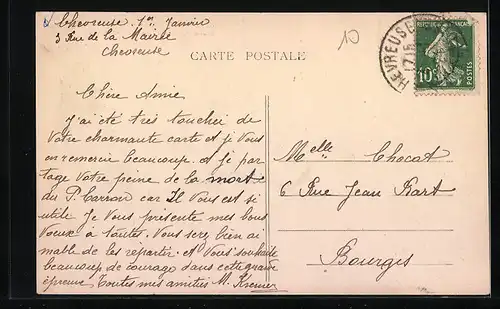 Chevreuse. 1er Janvier
3 Rue de la Mairie
Chevreuse
10
CARTE POSTALE
CHEVREUSE
10c
POSTES
Chère Amie
J'ai été très touchée de
Votre charmante carte et je Vous
en remercie beaucoup. et je par
tage Votre peine de la mort
du P. Carron car Il Vous est si
utile Je Vous présente mes bons
Vœux à toutes. Vous serez bien ai
mable de les répartir. et Vous souhaite
beaucoup de courage dans cette grande
épreuve Toutes mes amitiés M.
Melle Chocat
6 Rue Jean Bart
Bourges